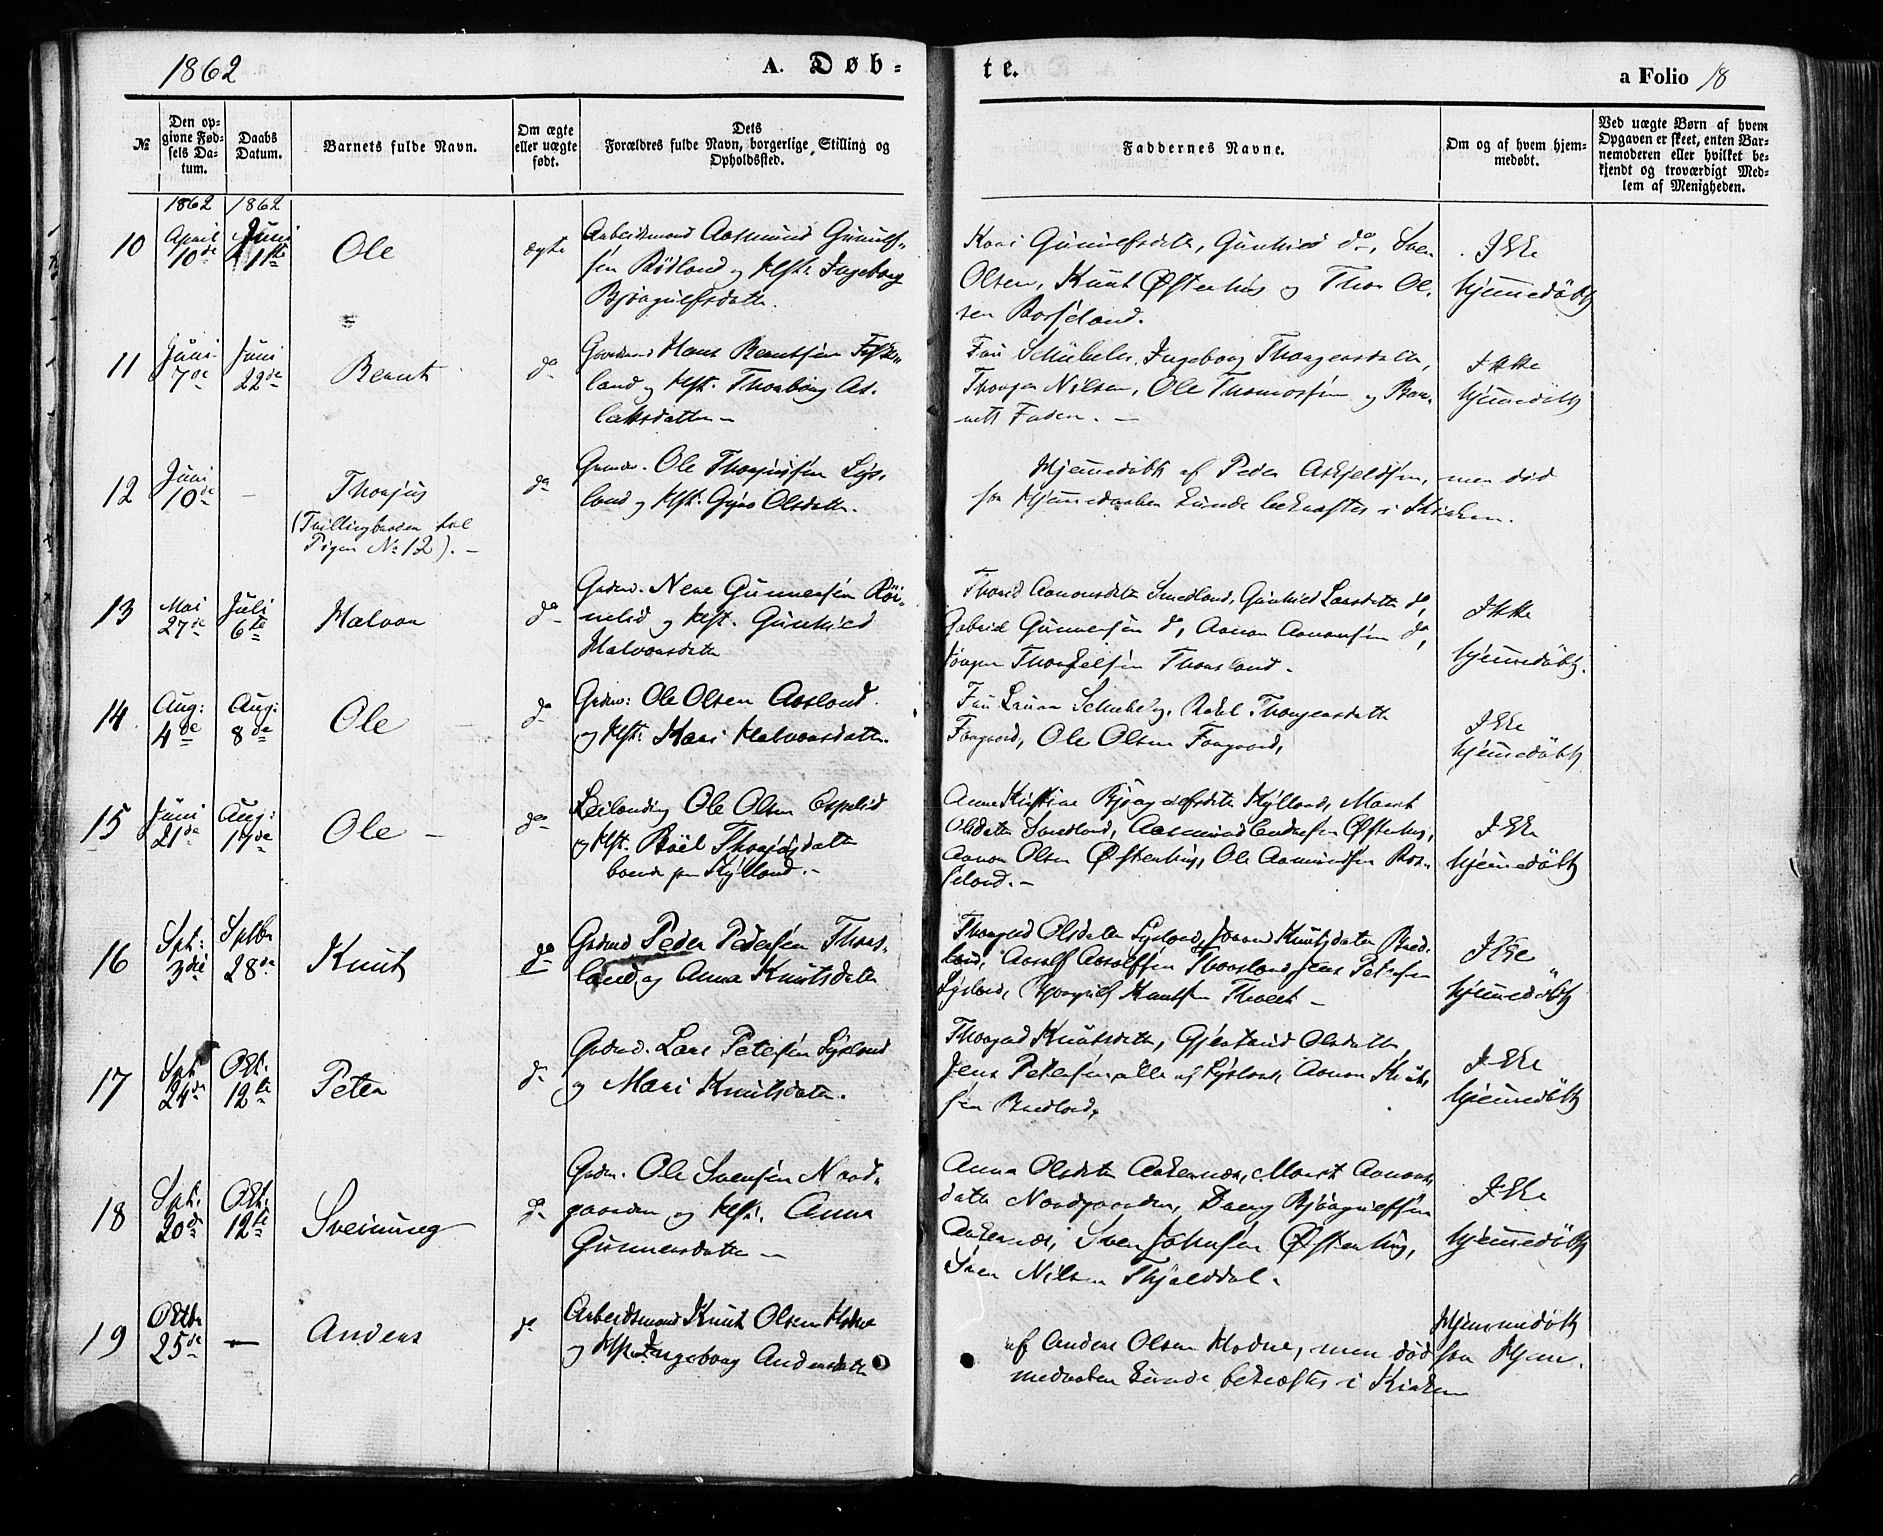 1862
A. Døb-
te.
a Folio 18
№
Den op-
givne Fød-
sels Da-
tum.
Daabs
Datum.
Barnets fulde Navn.
Om ægte
eller uægte
født.
Dets
Forældres fulde Navn, borgerlige Stilling og
Opholdssted.
Faddernes Navne.
Om og af hvem hjem-
medøbt.
Ved uægte Børn af hvem
Opgaven er skeet, enten Bar-
nemoderen eller hvilket be-
kjendt og troværdigt Med-
lem af Menigheden.
1862
1862
10
April
10de
Juni
Ole
ægte
Arbeidsmand Aasmund Gunulf-
sen Rødland og Hst. Ingeborg
Bjørgulfsdatter
Kari Gunulfsdatter, Gunhild do, Sven
Olsen, Knut Østerhus og Thor Ol-
sen Rosseland.
Ikke
hjemmedøbt
11
Juni
7de
Juni
22de
Berent
do
Gaardmand Hans Berentsen
land og Hst. Thorbørg As-
laksdatter
Fru Schübeler, Ingeborg Thorgersdatter,
Thorger Nilsen, Ole Thomassen og Bar-
nets Fader.
Ikke
hjemmedøbt
12
Juni
10de
–
Thorjus
(Tvillingbroder til
Pigen No 12).
do
Grdmd. Ole Thorjussen Lys-
land og Hst. Gyro Olsdatter.
Hjemmedøbt af Peder Askjeldsen, men død
før Hjemmedaaben kunde bekræftes i Kirken.
13
Mai
27de
Juli
6te
Halvor
do
Grdmd. Neri Gunnersen Røi-
nelid og Hst. Gunhild
Halvorsdatter
Thorid Aanonsdatter Smedland, Gunhild Larsdatter do,
Gabriel Gunnersen do, Aanon Aanonsen do,
Jørgen Thorkelsen Thorsland.
Ikke
hjemmedøbt.
14
Aug:
4de
Aug:
8de
Ole
do
Grdmd: Ole Olsen Aasland
og Hst: Kari Halvorsdatter.
Fru Laura Schübeler, Rakel Thorgersdatter
Faagaard, Ole Olsen Faagaard,
Ikke
hjemmedøbt
15
Juni
21de
Aug:
Ole
do
Leilending Ole Olsen Espelid
og Hst. Bøel Thorjusdatter
boende paa Kylland.
Anne Kirstine Bjørgulfsdatter Kylland, Marit
Olsdatter Smedland, Aasmund Endresen Østerhus,
Aanon Olsen Østerhus, Ole Aamundsen Ros-
seland.
Ikke
hjemmedøbt
16
Spt:
3die
Septbr
28de
Knut
do
Grdmd Peder Pedersen Thors-
land, og Anna Knutsdatter
Thorgerd Olsdatter Lysland, Joran Knutsdatter Bred-
land, Aasulf Aasulfsen Thorsland, Jens Petersen
Lysland, Bjorgulf Knutsen Thveit
Ikke
hjemmedøbt
17
Spt
24de
Okt.
12te
Peter
do
Grdmd. Lars Petersen Lysland
og Mari Knutsdatter.
Thorgerd Knutsdatter, Gjertrud Olsdatter,
Jens Petersen, alle af Lysland, Aanon Knut-
sen Bredland,
Ikke
hjemmedøbt
18
Spt.
20de
Okt.
12te
Sveinung
do
Grdmd. Ole Svensen Nord-
gaarden og Hst. Anna
Gunnersdatter
Anna Olsdatter Askernes, Marit Aanons-
datter Nordgaarden, Dreng Bjørgulfsen
Askernes, Sven Johnsen Østerhus,
Sven Nilsen Kjelddal.
Ikke
hjemmedøbt
19
Oktbr
25de
–
Anders
do
Arbeidsmand Knut Olsen Hodne
og Hst. Ingeborg Andersdatter
Hjemmedøbt
af Anders Olsen Hodne, men død før Hjem-
medaaben kunde bekræftes i Kirken